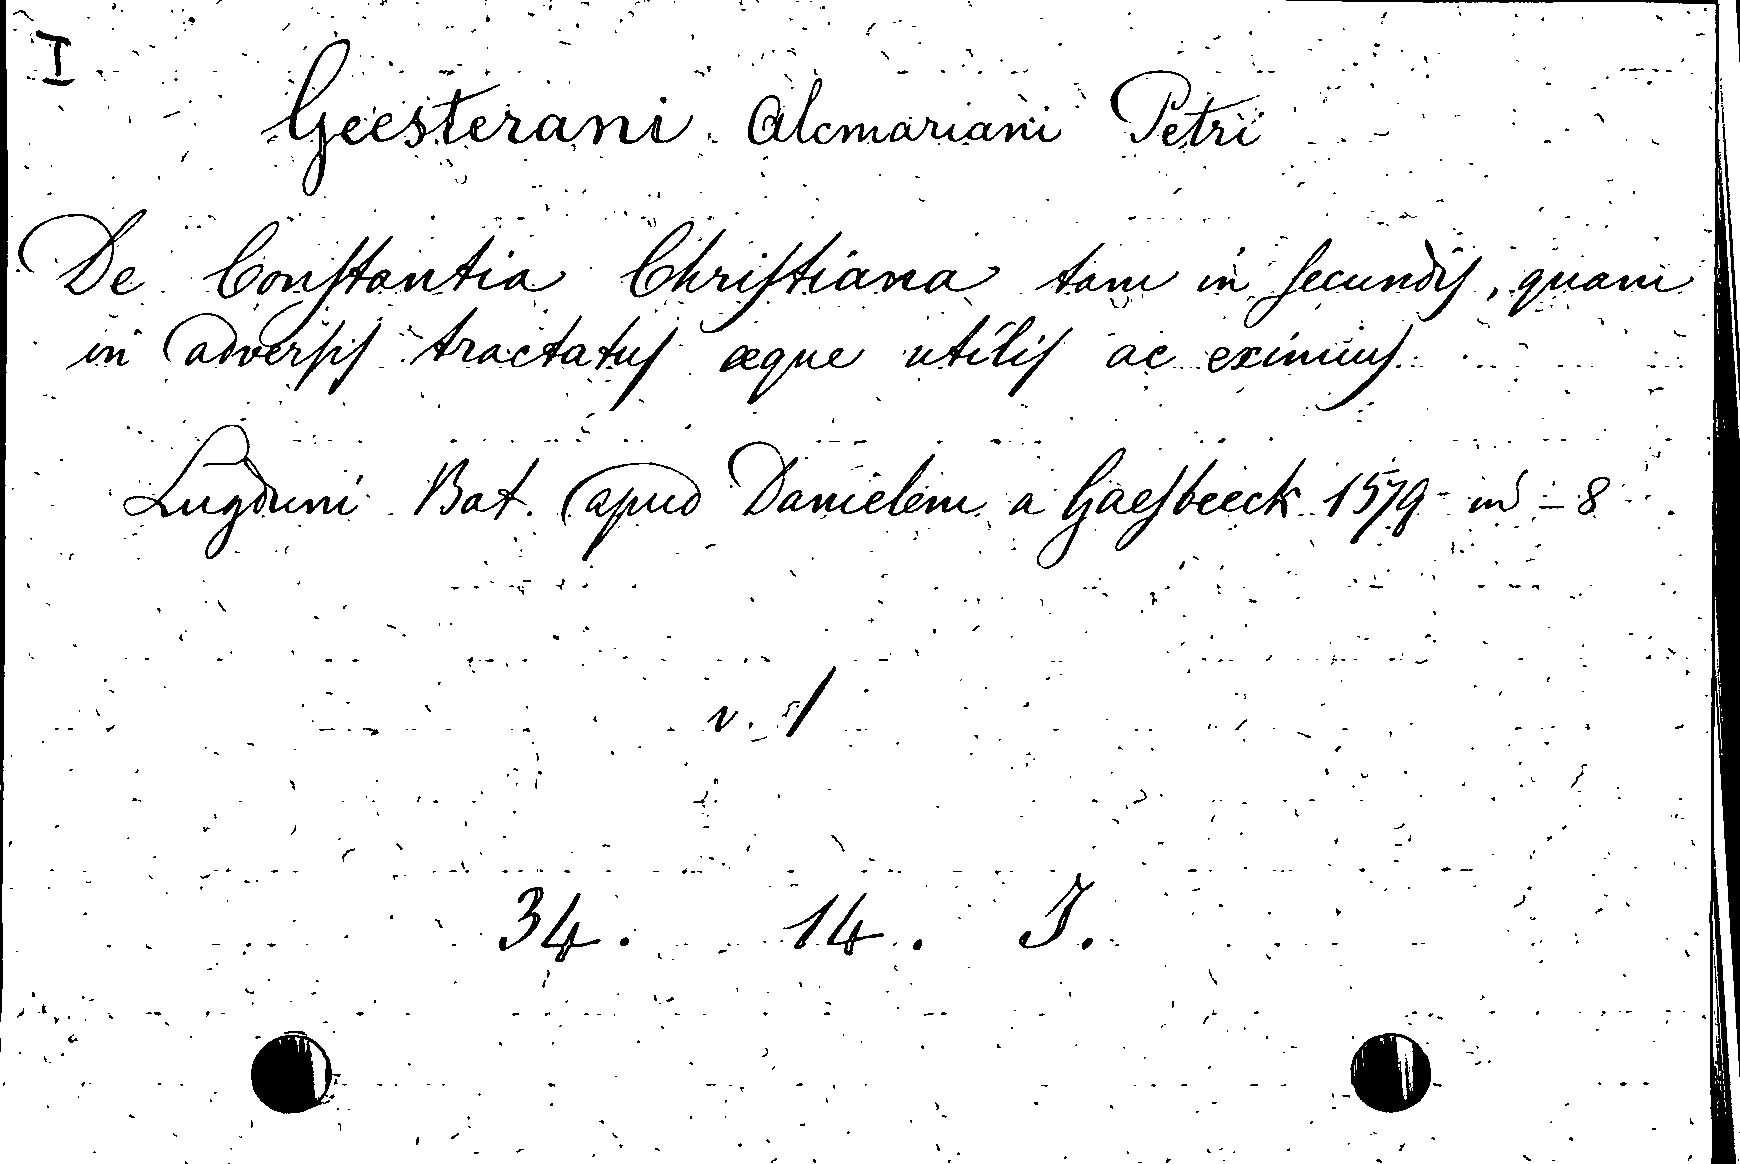 I
Geesterani Alcmariani Petri
De Conſtantia Chriſtiana tam in ſecundis, quam
in adverſis tractatus æque utilis ac eximius
Lugduni Bat. apud Danielem a Gaesbeeck 1579 in - 8
v. 1
34. 14. I.